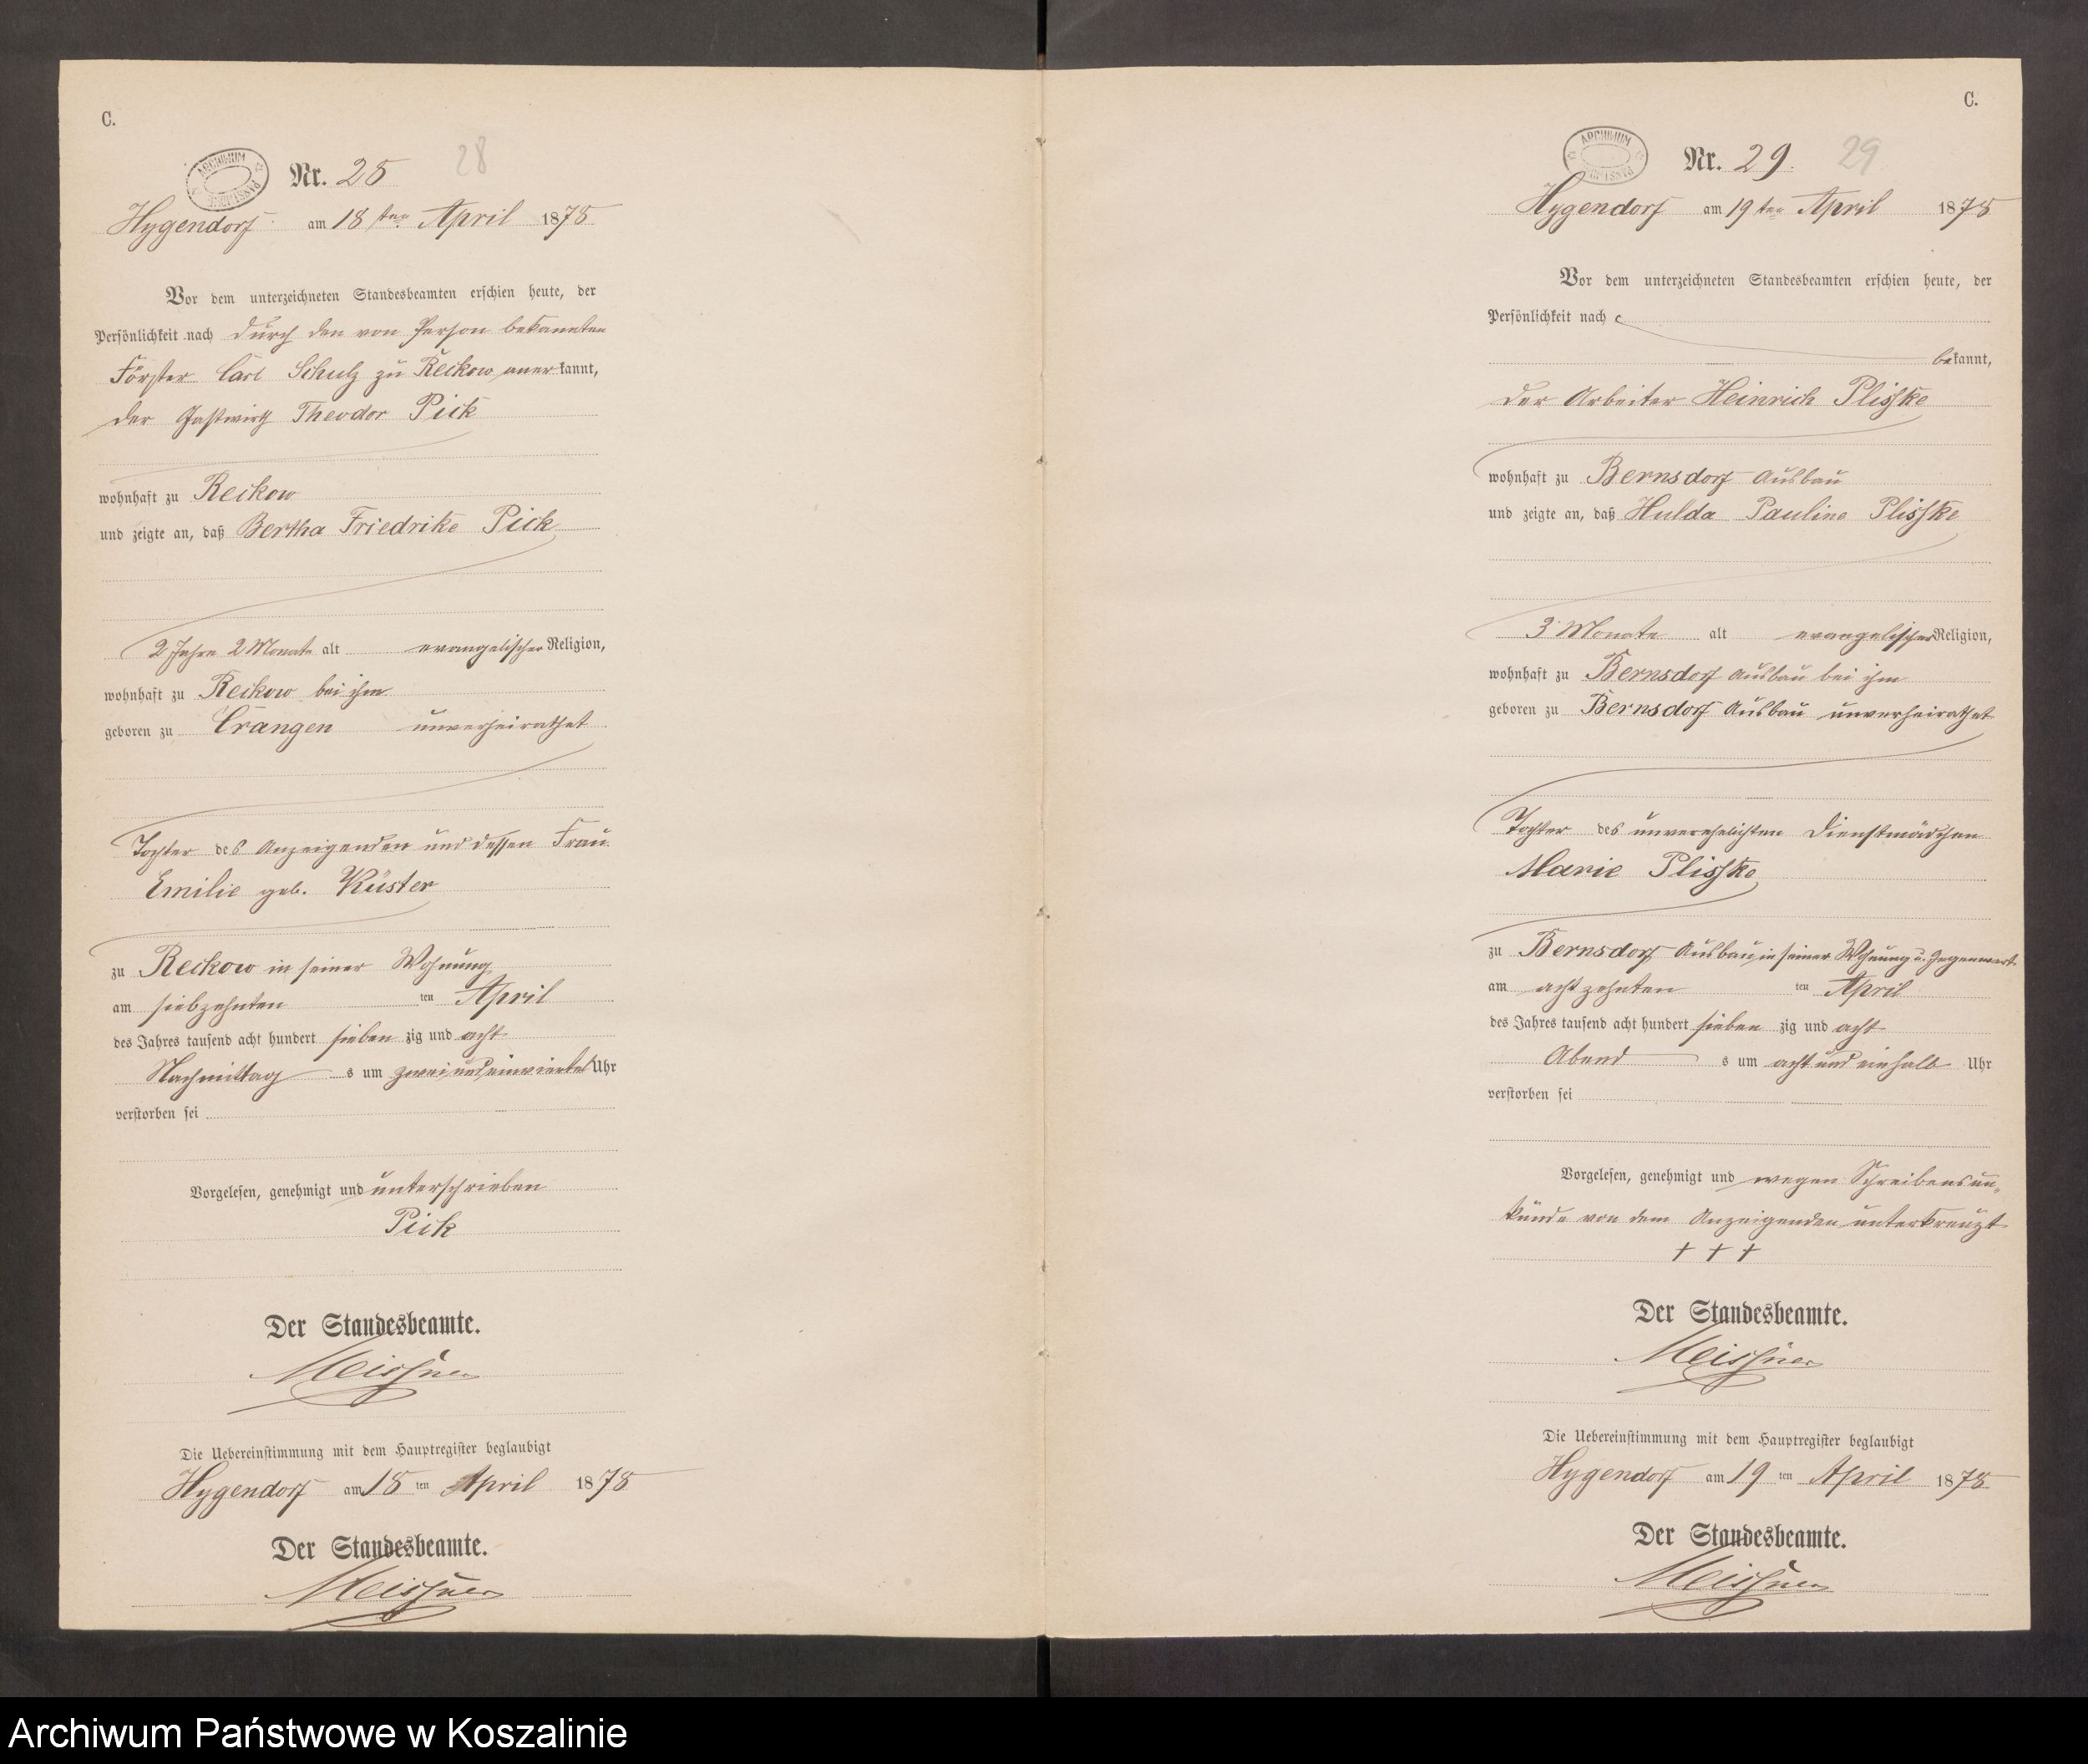 C.
Nr. 28
28
Hygendorf am 18 ten April 1878
Vor dem unterzeichneten Standesbeamten erschien heute, der
Persönlichkeit nach durch den von Person bekannten
Förster Carl Schulz zu Reckow anerkannt,
der Gastwirth Theodor Pick
wohnhaft zu Reckow
und zeigte an, daß Bertha Friedrike Pick
2 Jahre 2 Monate alt evangelischer Religion,
wohnhaft zu Reckow bei ihm
geboren zu Crangen unverheirathet
Tochter des Anzeigenden und dessen Frau
Emilie geb. Küster
zu Reckow in seiner Wohnung
am siebzehnten ten April
des Jahres tausend acht hundert sieben zig und acht
Nachmittag s um zwei und einviertel Uhr
verstorben sei
Vorgelesen, genehmigt und unterschrieben
Pick
Der Standesbeamte.
Meissner
Die Uebereinstimmung mit dem Hauptregister beglaubigt
Hygendorf am 18 ten April 1878
Der Standesbeamte.
Meissner
C.
ARCHIWUM
Nr. 29.
29
Hygendorf am 19 ten April 1878
Vor dem unterzeichneten Standesbeamten erschien heute, der
Persönlichkeit nach
bekannt,
der Arbeiter Heinrich Plisske
wohnhaft zu Bernsdorf Ausbau
und zeigte an, daß Hulda Pauline Plisske
3 Monate alt evangelischer Religion,
wohnhaft zu Bernsdorf Ausbau bei ihm
geboren zu Bernsdorf Ausbau unverheirathet
Tochter des unverehelichten Dienstmädchen
Marie Plisske
zu Bernsdorf Ausbau in seiner Wohnung u. Gegenwart
am achtzehnten ten April
des Jahres tausend acht hundert sieben zig und acht
Abend s um acht und einhalb Uhr
verstorben sei
Vorgelesen, genehmigt und wegen Schreibensun-
kunde von dem Anzeigenden unterkreuzt
+ + +
Der Standesbeamte.
Meissner
Die Uebereinstimmung mit dem Hauptregister beglaubigt
Hygendorf am 19 ten April 1878
Der Standesbeamte.
Meissner
Archiwum Państwowe w Koszalinie